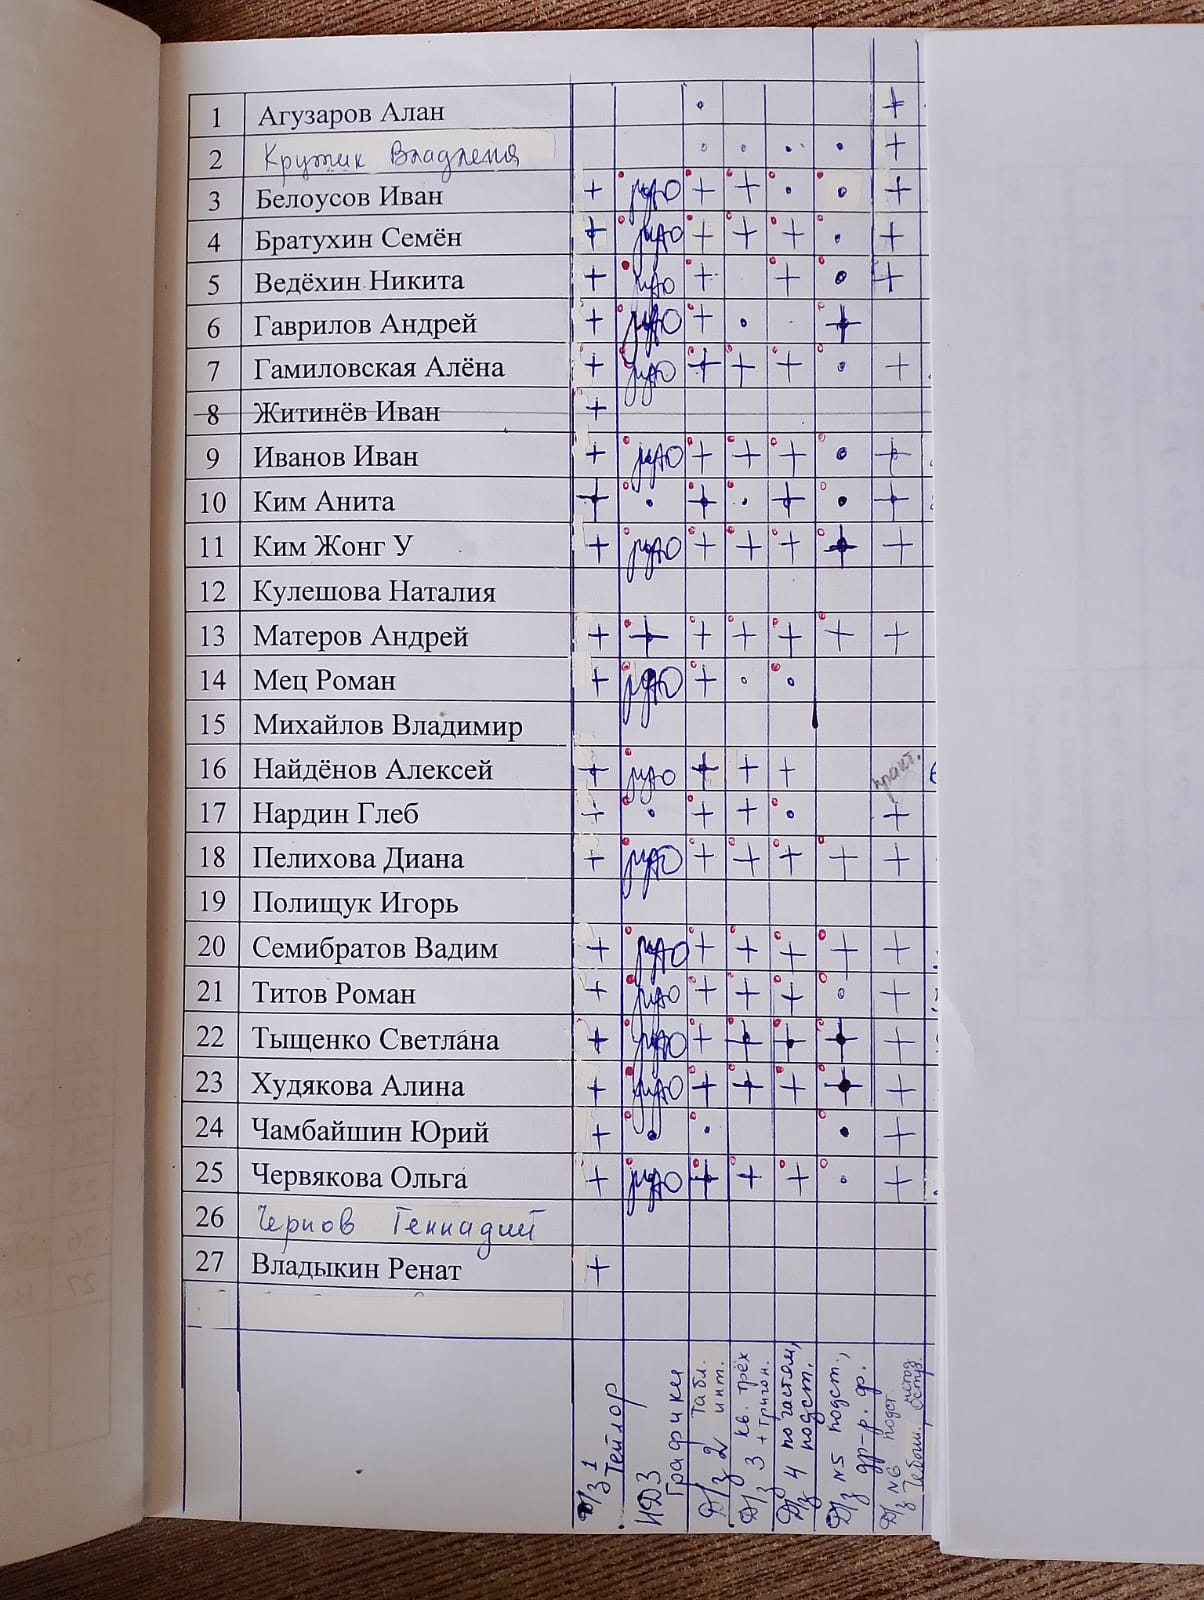 1 Агузаров Алан • +
2 Крутик Владлена • • • • +
3 Белоусов Иван + + + • • +
4 Братухин Семён + + + + • +
5 Ведёхин Никита + + + • +
6 Гаврилов Андрей + + • +
7 Гамиловская Алёна + + + + • +
8 Житинёв Иван +
9 Иванов Иван + + + + • +
10 Ким Анита + • + • + • +
11 Ким Жонг У + + + + + +
12 Кулешова Наталия
13 Матеров Андрей + + + + + + +
14 Мец Роман + + • •
15 Михайлов Владимир
16 Найдёнов Алексей + + + + практ.
17 Нардин Глеб + • + + • +
18 Пелихова Диана + + + + + +
19 Полищук Игорь
20 Семибратов Вадим + + + + + +
21 Титов Роман + + + + • +
22 Тыщенко Светлана + + + + + +
23 Худякова Алина + + + + + +
24 Чамбайшин Юрий + • • • +
25 Червякова Ольга + + + + • +
26 Чернов Геннадий
27 Владыкин Ренат +
Д/з 1 Тейлор
ИДЗ Графики
Д/з 2 Табл. инт.
Д/з 3 кв. трёх + Тригон.
Д/з 4 по частям, подст.
Д/з №5 подст., др-р. ф.
Д/з №6 подст. Чебыш., метод Остр.